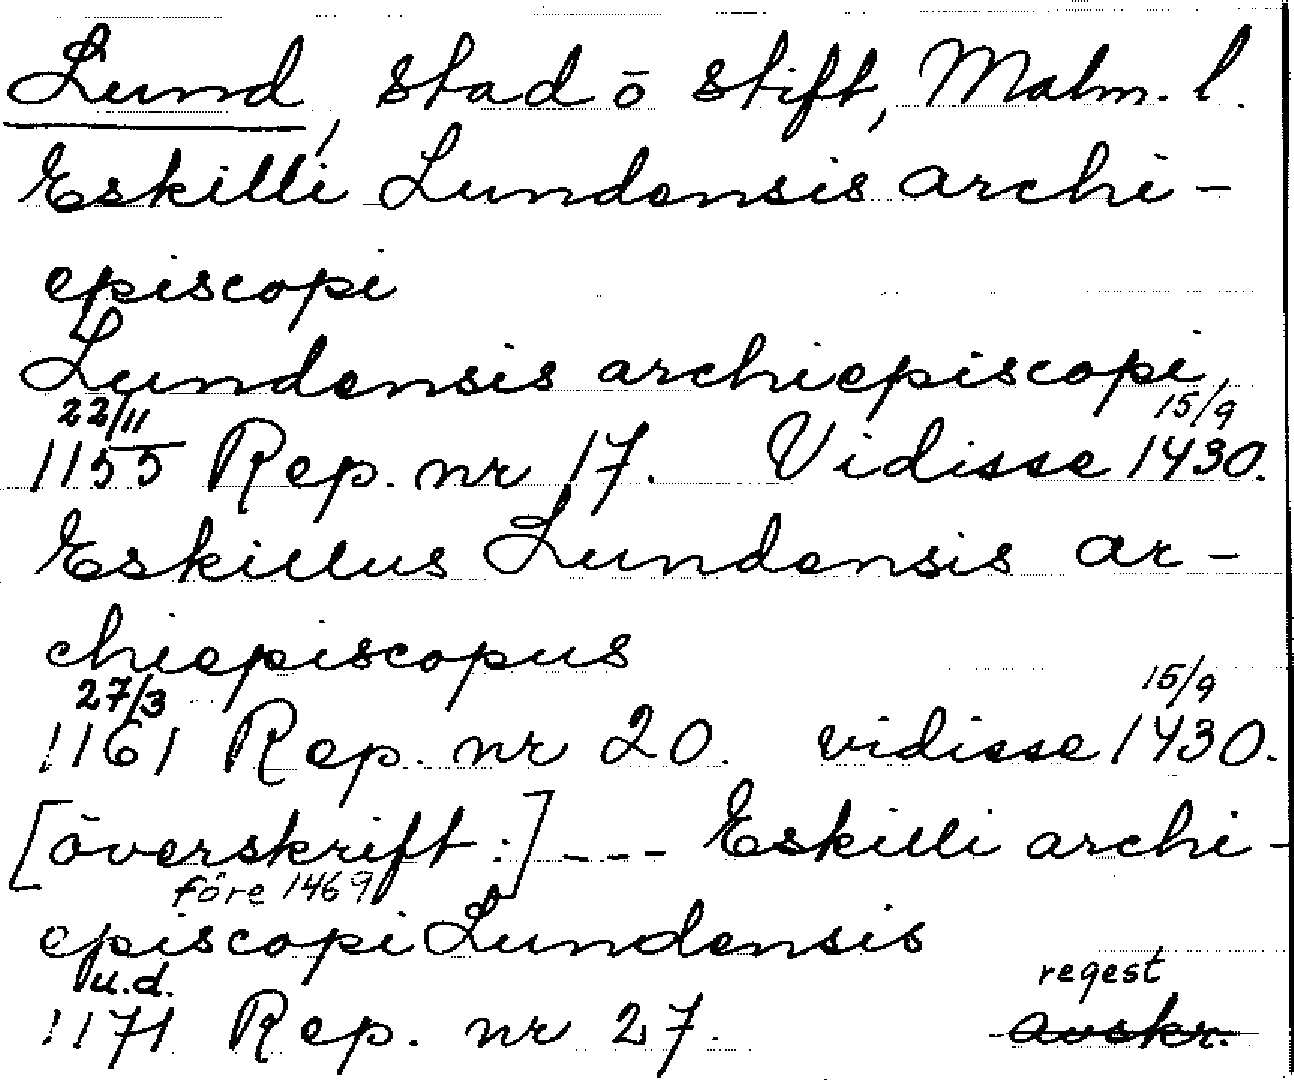 Lund, stad ō stift, Malm. l.
Eskilli Lundensis archi-
episcopi
Lundensis archiepiscopi,
22/11 15/9
1155 Rep. nr 17. Vidisse 1430.
Eskillus Lundensis ar-
chiepiscopus
27/3 15/9
1161 Rep. nr 20. vidisse 1430.
[överskrift:] --- Eskilli archi-
före 1469
episcopi Lundensis
u.d. regest
1171 Rep. nr 27. avskr.